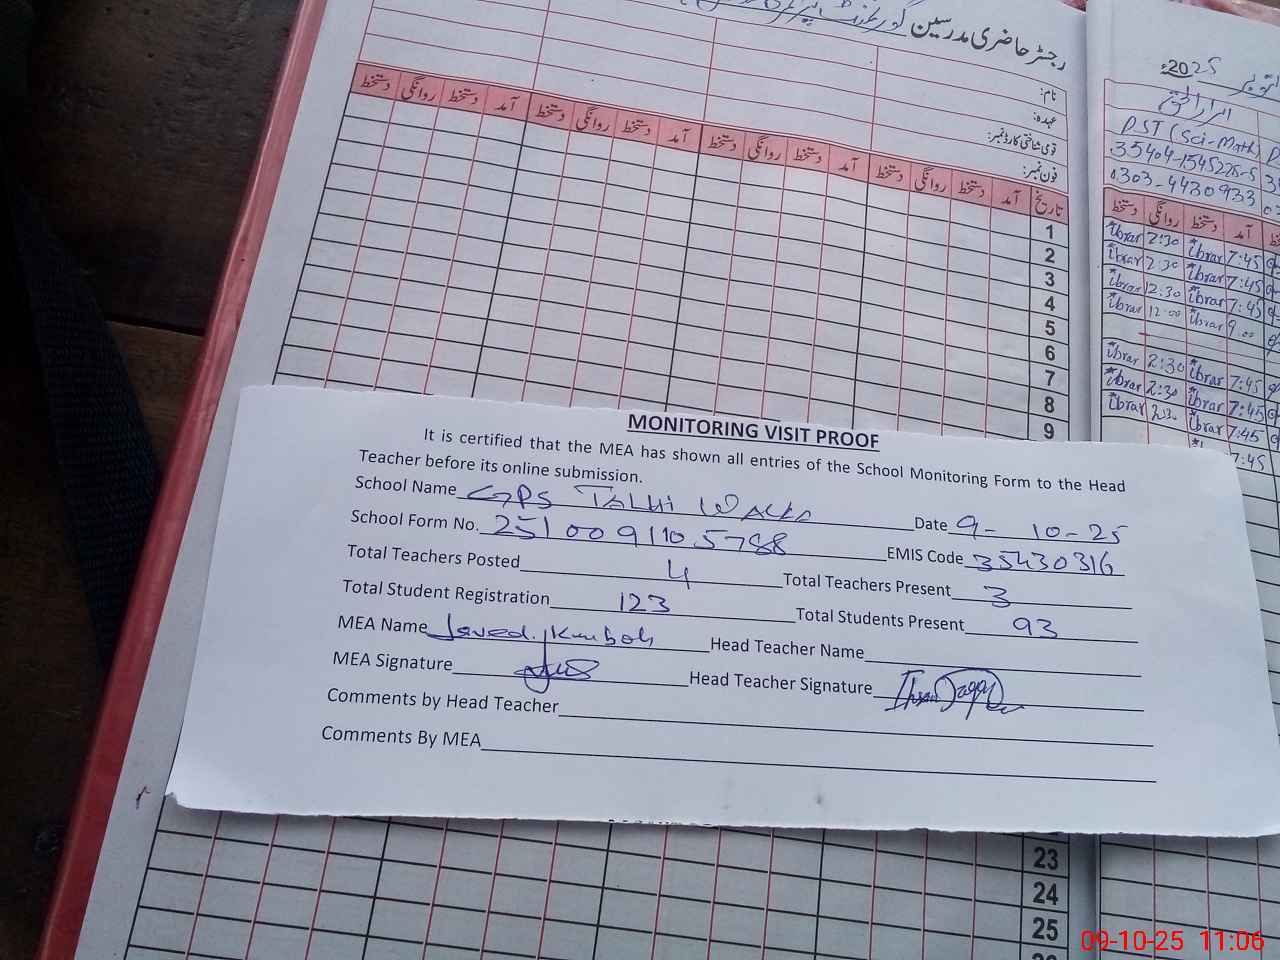 رجسٹر حاضری مدرسین گورنمنٹ پرائمری
نام:
عہدہ:
قومی شناختی کارڈ نمبر:
فون نمبر:
تاریخ آمد دستخط روانگی دستخط آمد دستخط روانگی دستخط آمد دستخط روانگی دستخط آمد دستخط روانگی دستخط
1
2
3
4
5
6
7
8
9
اکتوبر 2025ء
ابرار الحق
PST (Sci-Math)
35404-1545275-5
0303-4430933
آمد دستخط روانگی دستخط
ibrar 2:30 ibrar 7:45
ibrar 2:30 ibrar 7:45
ibrar 12:30 ibrar 7:45
ibrar 12:00 ibrar 9:00
ibrar 2:30 ibrar 7:45
ibrar 2:30 ibrar 7:45
ibrar 2:30 ibrar 7:45
7:45
MONITORING VISIT PROOF
It is certified that the MEA has shown all entries of the School Monitoring Form to the Head
Teacher before its online submission.
School Name GPS Talhi Wala Date 9-10-25
School Form No. 2510091105788 EMIS Code 35430316
Total Teachers Posted 4 Total Teachers Present 3
Total Student Registration 123 Total Students Present 93
MEA Name Javed Kamboh Head Teacher Name
MEA Signature Head Teacher Signature
Comments by Head Teacher
Comments By MEA
23
24
25
09-10-25 11:06